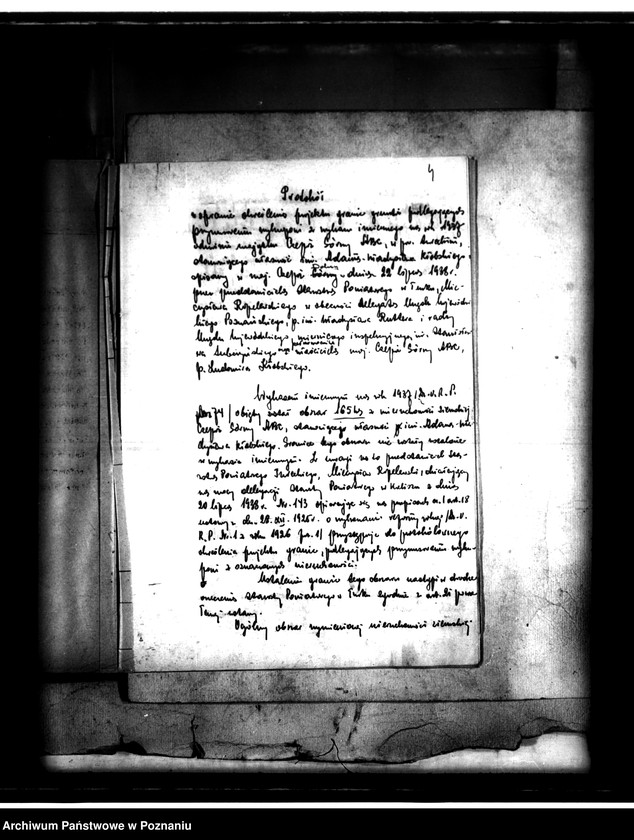 4
Protokół
w sprawie określenia projektu granic gruntu podlegających
przymusowemu wykupowi z wykazu imiennego na rok 1937
odnośnie majątku Czepów Górny ABC, w pow. tureckim,
stanowiącego własność inż. Adama-Władysława Kiełbskiego
spisany w maj. Czepów Górny w dniu 22 lipca 1938 r.
przez przedstawiciela Starosty Powiatowego w Turku, Mie-
czysława w obecności delegata Urzędu Wojewódz-
kiego Poznańskiego, p. inż. Władysława i radcy
Urzędu Wojewódzkiego, mierniczego inspekcyjnego, inż. Stanisła-
wa właściciela maj. Czepów Górny ABC,
p. Ludomira
Wykazem imiennym na rok 1937 /Dz.U.R.P.
objęty został obszar 165 ha z nieruchomości ziemskiej
Czepów Górny ABC, stanowiącej własność p. inż. Adama-Wła-
dysława Kiełbskiego. Granice tego obszaru nie zostały ustalone
w wykazie imiennym. Ze uwagi na to przedstawiciel Sta-
rosty Powiatowego Tureckiego, Mieczysław działający
na mocy delegacji Starosty Powiatowego w z dnia
20 lipca 1938 r. Nr. 143 opierając się na przepisach art. 18
ustawy z dn. 28.XII.1925 r. o wykonaniu reformy rolnej /Dz.U.
R.P. Nr. 1 z roku 1926 poz. 1/ przystępuje do protokólarnego
określenia projektu granic, podlegających przymusowemu wyku-
powi z oznaczonych nieruchomości.
Ustalenie granic tego obszaru nastąpi w
orzeczeniu Starosty Powiatowego w Turku zgodnie z art. powo-
łanej ustawy.
Ogólny obszar wymienionej nieruchomości ziemskiej
Archiwum Państwowe w Poznaniu